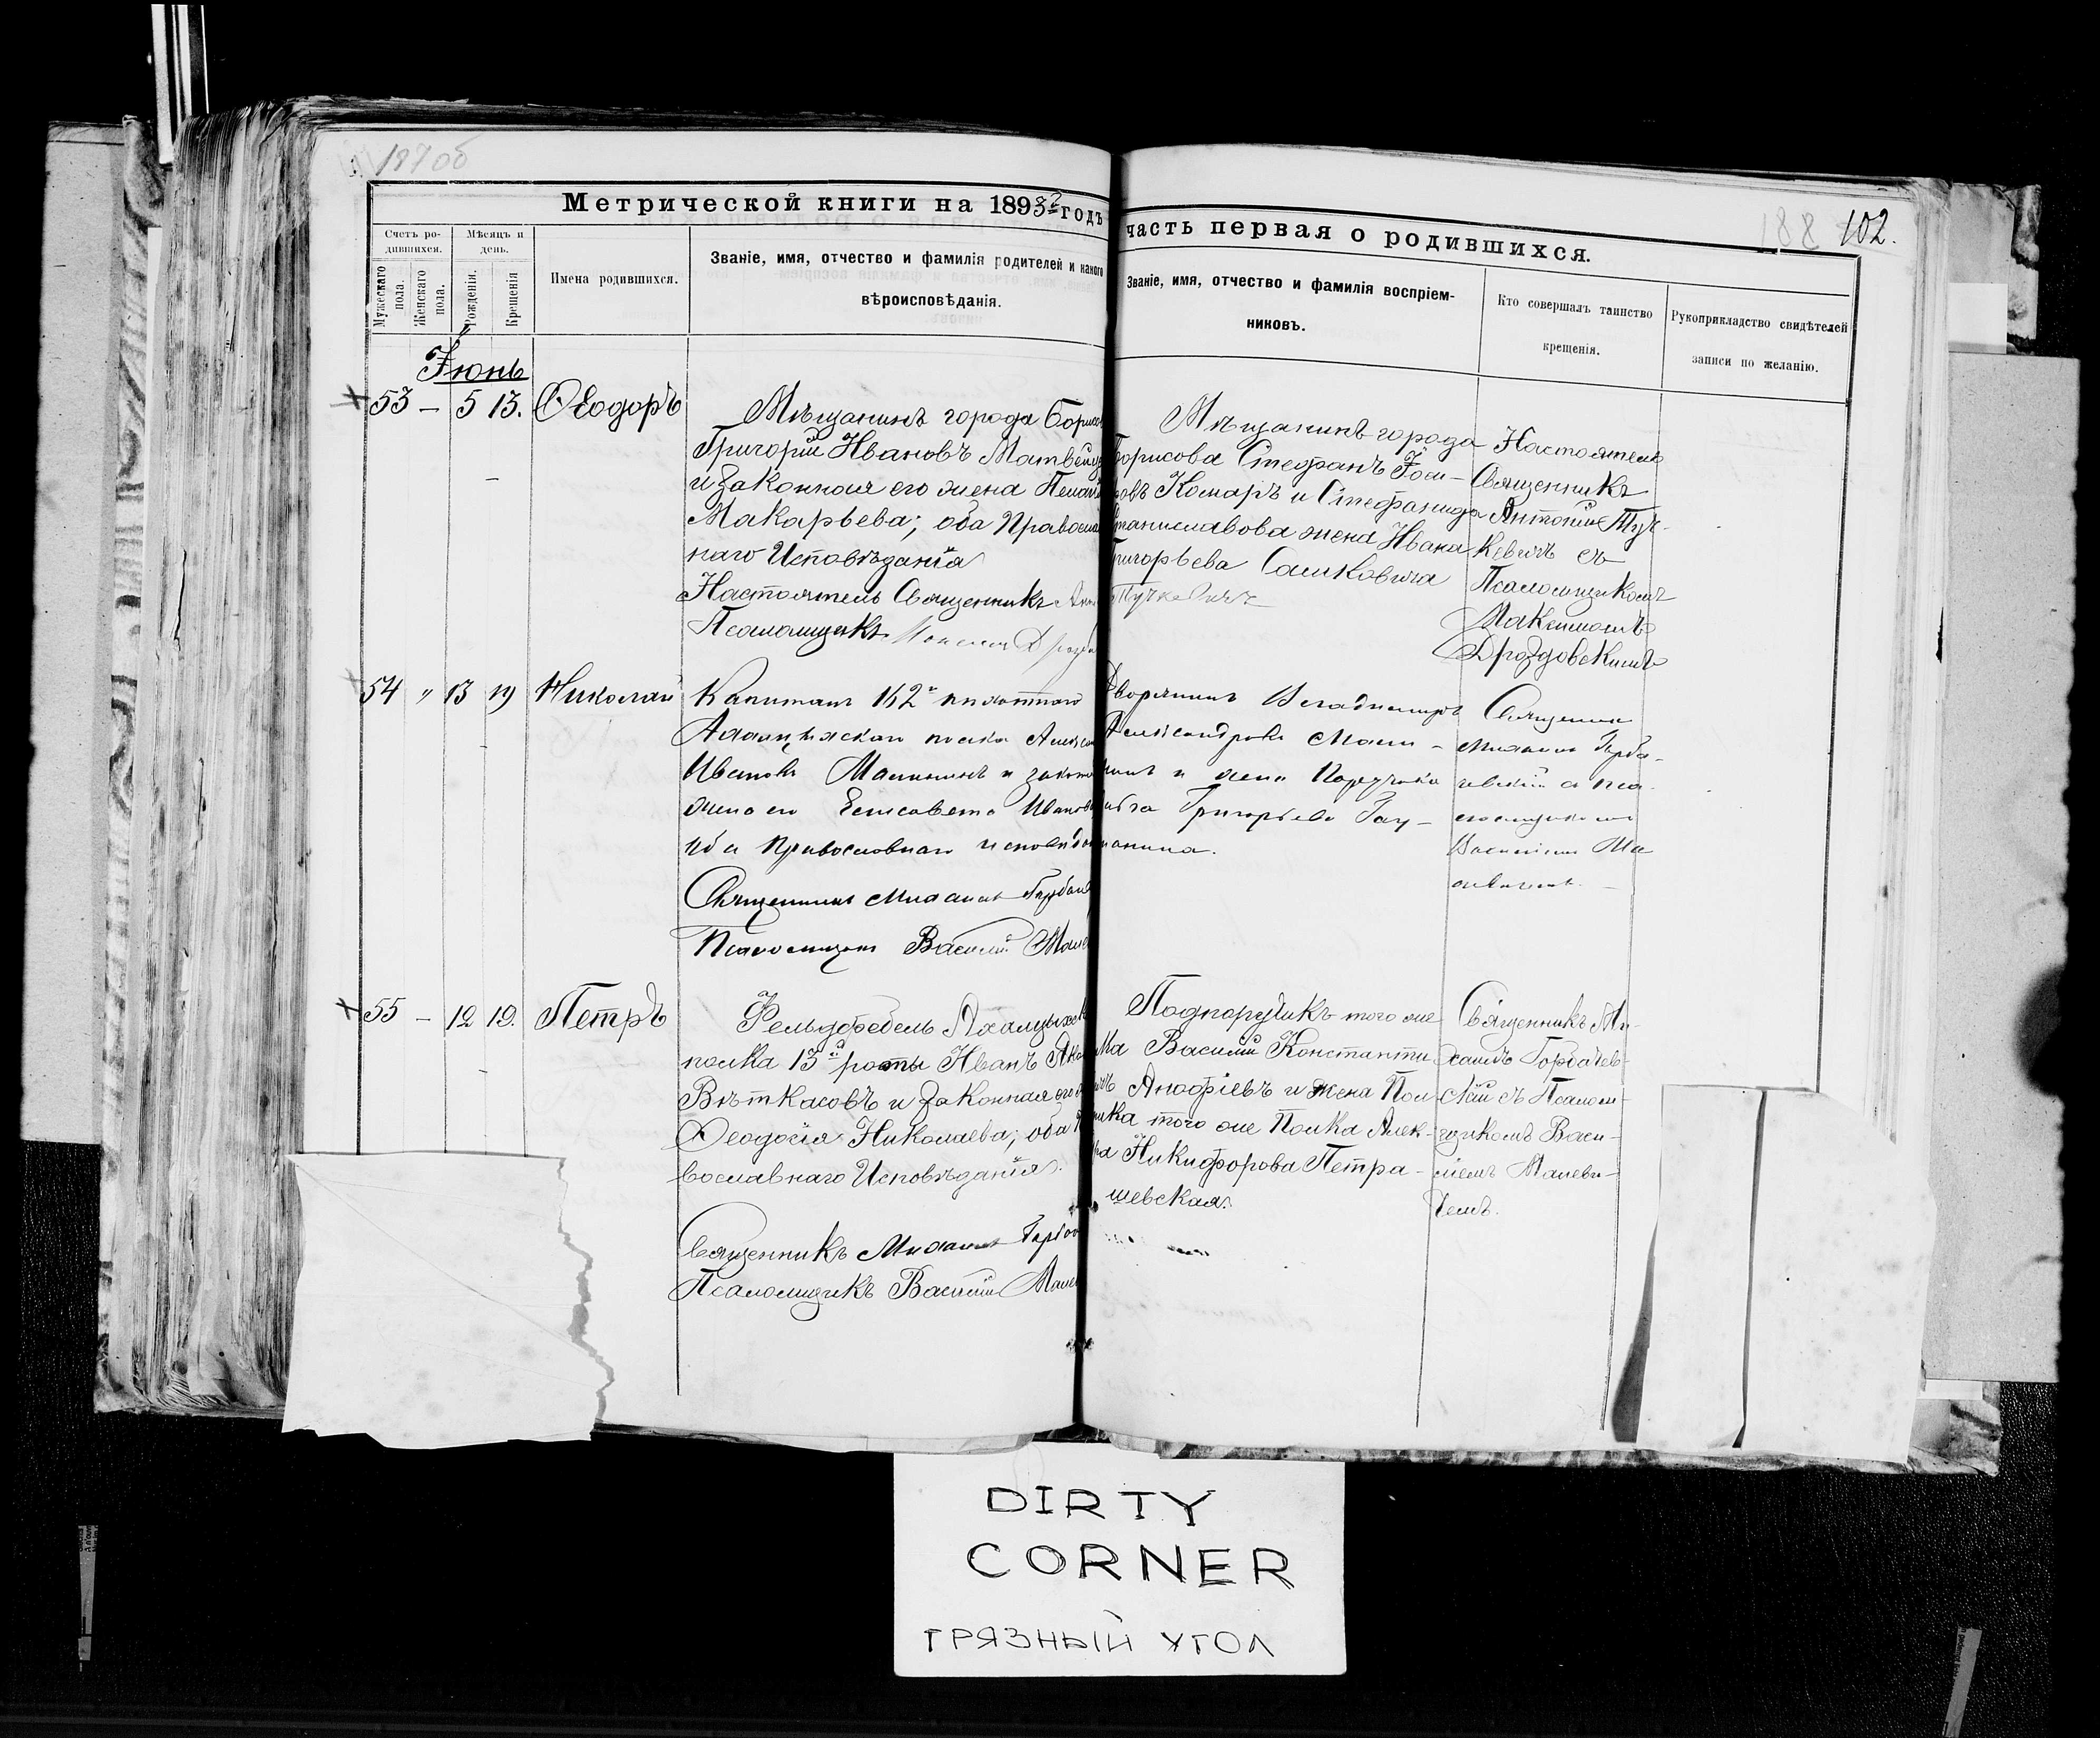 187об
Метрической книги на 1893 годъ
часть первая о родившихся.
188 102.
Счетъ ро-
дившихся.
Мѣсяцъ и
день.
Мужескаго
пола.
Женскаго
пола.
Рожденія.
Крещенія
Имена родившихся.
Званіе, имя, отчество и фамилія родителей и какого
вѣроисповѣданія.
Званіе, имя, отчество и фамилія воспріем-
никовъ.
Кто совершалъ таинство
крещенія.
Рукоприкладство свидѣтелей
записи по желанію.
Іюнь
53 – 5 13. Ѳеодоръ
Мѣщанинъ города Борисо
Григорій Ивановъ
и законная его жена
Макарьева; оба Правосла
наго Исповѣданія
Настоятель Священникъ
Псаломщикъ
Мѣщанинъ города
Борисова Стефанъ Іоси-
фовъ Комаръ и Стефанида
Станиславова жена Ивана
Григорьева Сашковича
Тучкевичъ
Настоятель
Священникъ
Антоній Туч-
кевичъ съ
Псаломщикомъ
Максимомъ
Дроздовскимъ
54 " 13 19 Николай
Капитанъ 162 пѣхотнаго
Ахалцыхскаго полка Алексан
Ивановъ Малининъ и законна
жена его Елисавета Иванов
оба Православнаго исповѣдан
Священникъ Михаилъ Горбач
Псаломщикъ Василій Мале
Дворянинъ Владиміръ
Александровъ Мали-
нинъ и жена Поручика
Григорьева Гау-
Священникъ
Михаилъ Горба-
чевскій съ пса-
ломщикомъ
Василіемъ Ма
левичемъ.
55 – 12 19. Петръ
Фельдфебель Ахалцыхск
полка 13й роты Иванъ Яко
Вѣткасовъ и законная его ж
Ѳеодосія Николаева; оба П
вославнаго Исповѣданія.
Священникъ Михаилъ Горбач
Псаломщикъ Василій Мале
Подпоручикъ того же
лка Василій Константи
чъ Анофріевъ и жена Пол
ника того же Полка Алек-
ра Никифорова Петра-
шевская.
Священникъ Ми-
хаилъ Горбачев-
скій съ Псалом-
щикомъ Васи-
ліемъ Малеви-
чемъ.
DIRTY
CORNER
ГРЯЗНЫЙ УГОЛ